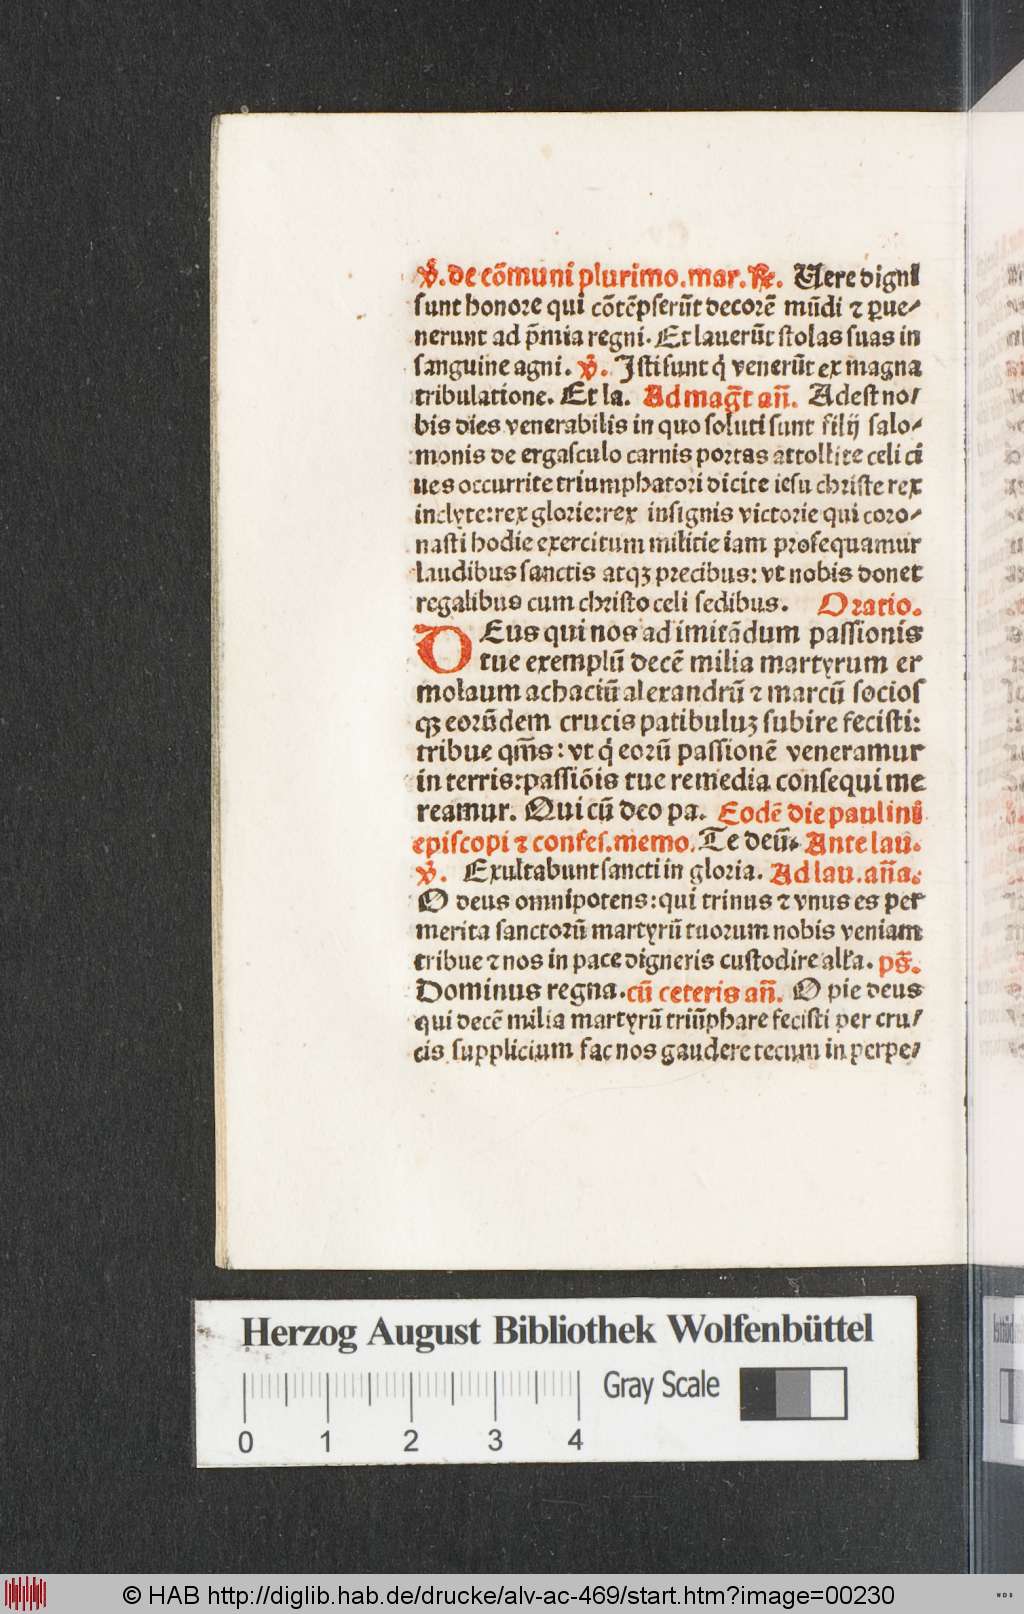 ℣. de cōmuni plurimo. mar. ℟. Uere digni
sunt honore qui cōtēpserūt decorē mūdi ⁊ ꝑue⸗
nerunt ad p̄mia regni. Et lauerūt stolas suas in
sanguine agni. ℣. Isti sunt q̇ venerūt ex magna
tribulatione. Et la. Ad mag̅t an̅. Adest no⸗
bis dies venerabilis in quo soluti sunt filij salo⸗
monis de ergasculo carnis portas attollite celi ci
ues occurrite triumphatori dicite iesu christe rex
inclyte: rex glorie: rex insignis victorie qui coro⸗
nasti hodie exercitum militie iam prosequamur
laudibus sanctis atqꝫ precibus: vt nobis donet
regalibus cum christo celi sedibus. Oratio.
DEus qui nos ad imitādum passionis
tue exemplū decē milia martyrum er
molaum achaciū alexandrū ⁊ marcū socios
qꝫ eorūdem crucis patibuluꝫ subire fecisti:
tribue qm̄s: vt q̇ eorū passionē veneramur
in terris: passiōis tue remedia consequi me
reamur. Qui cū deo pa. Eodē die paulini
episcopi ⁊ confes. memo. Te deū. Ante lau.
℣. Exultabunt sancti in gloria. Ad lau. an̅a.
O deus omnipotens: qui trinus ⁊ vnus es per
merita sanctorū martyrū tuorum nobis veniam
tribue ⁊ nos in pace digneris custodire all'a. ps̅.
Dominus regna. cū ceteris an̅. O pie deus
qui decē milia martyrū triūphare fecisti per cru⸗
cis supplicium fac nos gaudere tecum in perpe⸗
Herzog August Bibliothek Wolfenbüttel
Gray Scale
0 1 2 3 4
© HAB http://diglib.hab.de/drucke/alv-ac-469/start.htm?image=00230